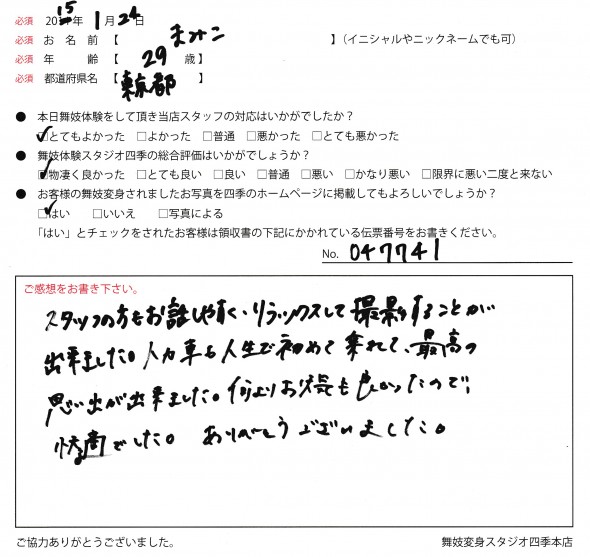 必須 2015年 1月 24日
必須 お名前【 まみこ 】(イニシャルやニックネームでも可)
必須 年齢【 29 歳】
必須 都道府県名【 東京都 】
● 本日舞妓体験をして頂き当店スタッフの対応はいかがでしたか?
☑とてもよかった □よかった □普通 □悪かった □とても悪かった
● 舞妓体験スタジオ四季の総合評価はいかがでしょうか?
☑物凄く良かった □とても良い □良い □普通 □悪い □かなり悪い □限界に悪い二度と来ない
● お客様の舞妓変身されましたお写真を四季のホームページに掲載してもよろしいでしょうか?
☑はい □いいえ □写真による
「はい」とチェックをされたお客様は領収書の下記にかかれている伝票番号をお書きください。
No. 047741
ご感想をお書き下さい。
スタッフの方もお話しやすく、リラックスして撮影することが
出来ました。人力車も人生で初めて乗れて、最高の
思い出が出来ました。何よりお天気も良かったので、
快適でした。ありがとうございました。
ご協力ありがとうございました。 舞妓変身スタジオ四季本店